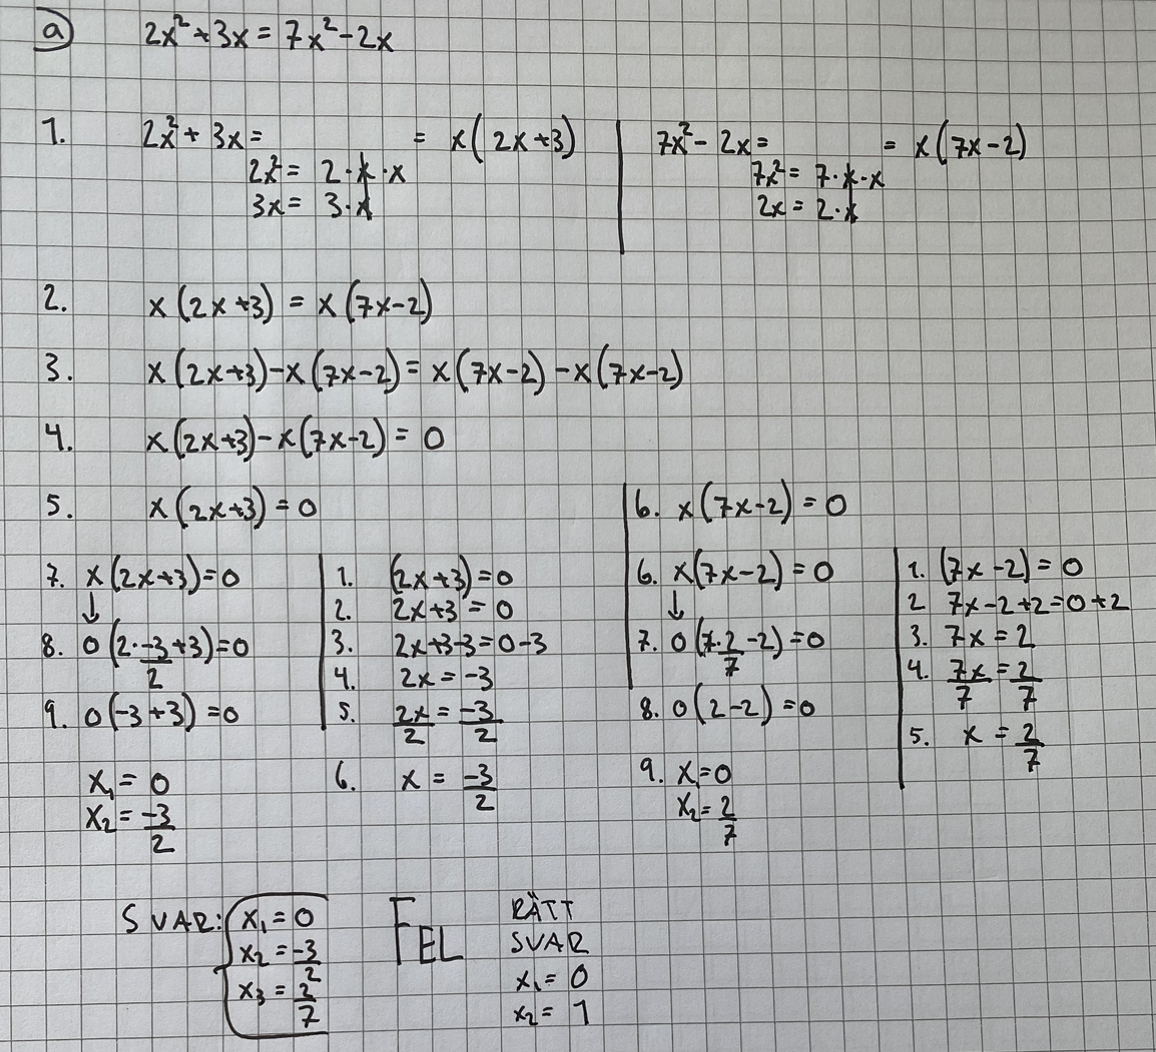 a) 2x² + 3x = 7x² - 2x
1. 2x² + 3x = = x(2x+3) | 7x² - 2x = = x(7x-2)
2x² = 2·x·x | 7x² = 7·x·x
3x = 3·x | 2x = 2·x
2. x(2x+3) = x(7x-2)
3. x(2x+3)-x(7x-2) = x(7x-2)-x(7x-2)
4. x(2x+3)-x(7x-2) = 0
5. x(2x+3) = 0 | 6. x(7x-2) = 0
7. x(2x+3)=0
↓
8. 0(2·-3/2+3)=0
9. 0(-3+3)=0
x₁ = 0
x₂ = -3/2
1. (2x+3)=0
2. 2x+3 = 0
3. 2x+3-3=0-3
4. 2x = -3
5. 2x/2 = -3/2
6. x = -3/2
6. x(7x-2)=0
↓
7. 0(7·2/7-2)=0
8. 0(2-2)=0
9. x₁=0
x₂=2/7
1. (7x-2)=0
2 7x-2+2=0+2
3. 7x=2
4. 7x/7=2/7
5. x = 2/7
SVAR: x₁=0
x₂=-3/2
x₃=2/7
FEL
RÄTT
SVAR
x₁= 0
x₂= 1